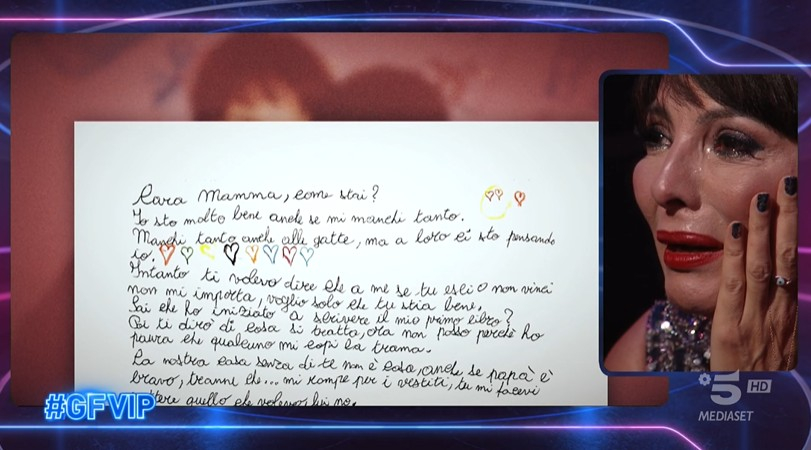 Cara Mamma, come stai?
Io sto molto bene anche se mi manchi tanto.
Manchi tanto anche alle gatte, ma a loro ci sto pensando
io.
Intanto ti volevo dire che a me se tu esci o non vinci
non mi importa, voglio solo che tu stia bene.
Sai che ho iniziato a scrivere il mio primo libro?
Poi ti dirò di cosa si tratta, ora non posso perchè ho
paura che qualcuno mi copi la trama.
La nostra casa senza di te non è casa, anche se papà è
bravo, tranne che... mi rompe per i vestiti, tu mi facevi
mettere quello che volevo lui no.
#GFVIP
5 HD
MEDIASET